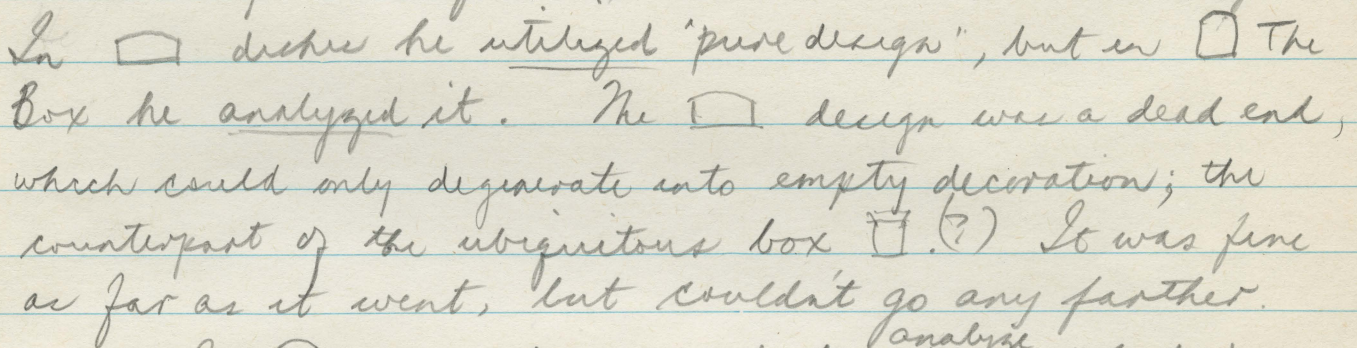 In dishes he utilized "pure design", but in The
Box he analyzed it. The design was a dead end,
which could only degenerate into empty decoration; the
counterpart of the ubiquitous box .(?) It was fine
as far as it went, but couldn't go any farther.
analyze